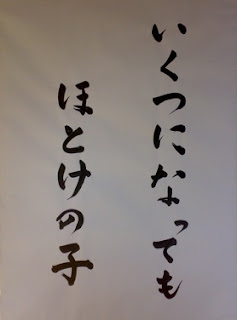 いくつになっても
ほとけの子